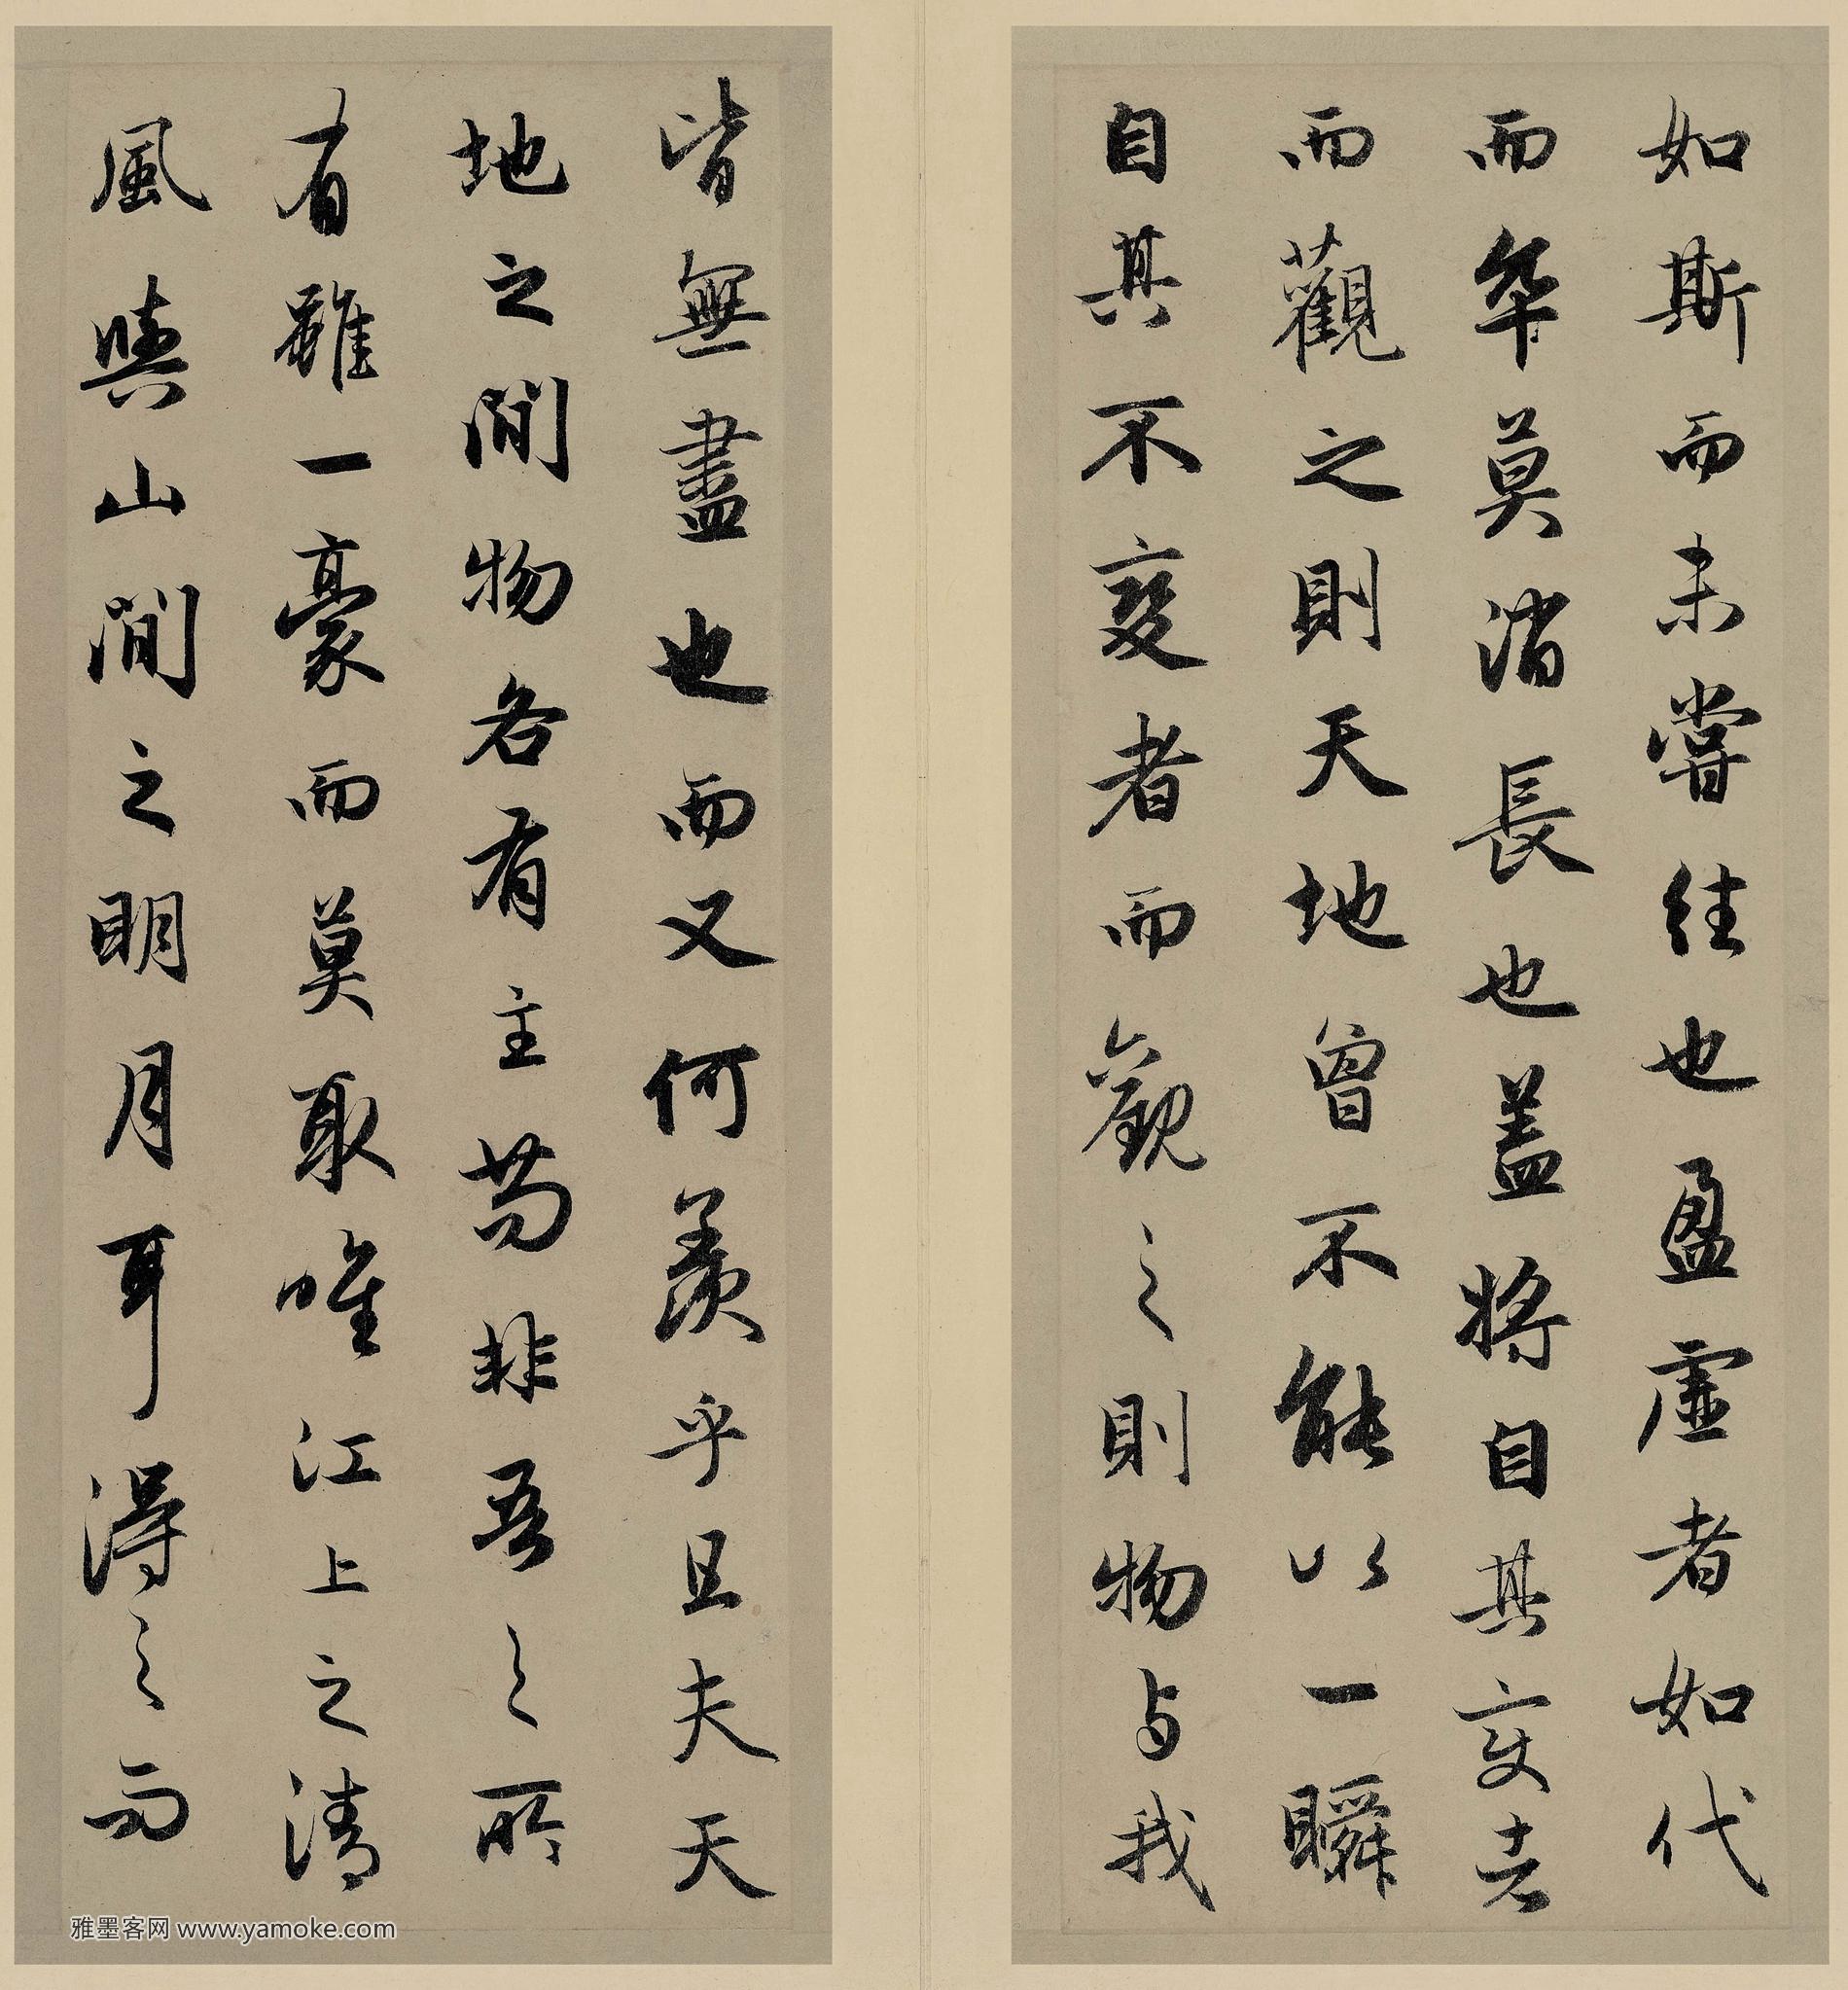 如斯而未嘗往也盈虛者如代
而卒莫消長也盖將自其变者
而觀之則天地曾不能以一瞬
自其不變者而觀之則物与我
皆無盡也而又何羨乎且夫天
地之間物各有主苟非吾之所
有雖一豪而莫取唯江上之清
風與山間之明月耳得之而
雅墨客网 www.yamoke.com